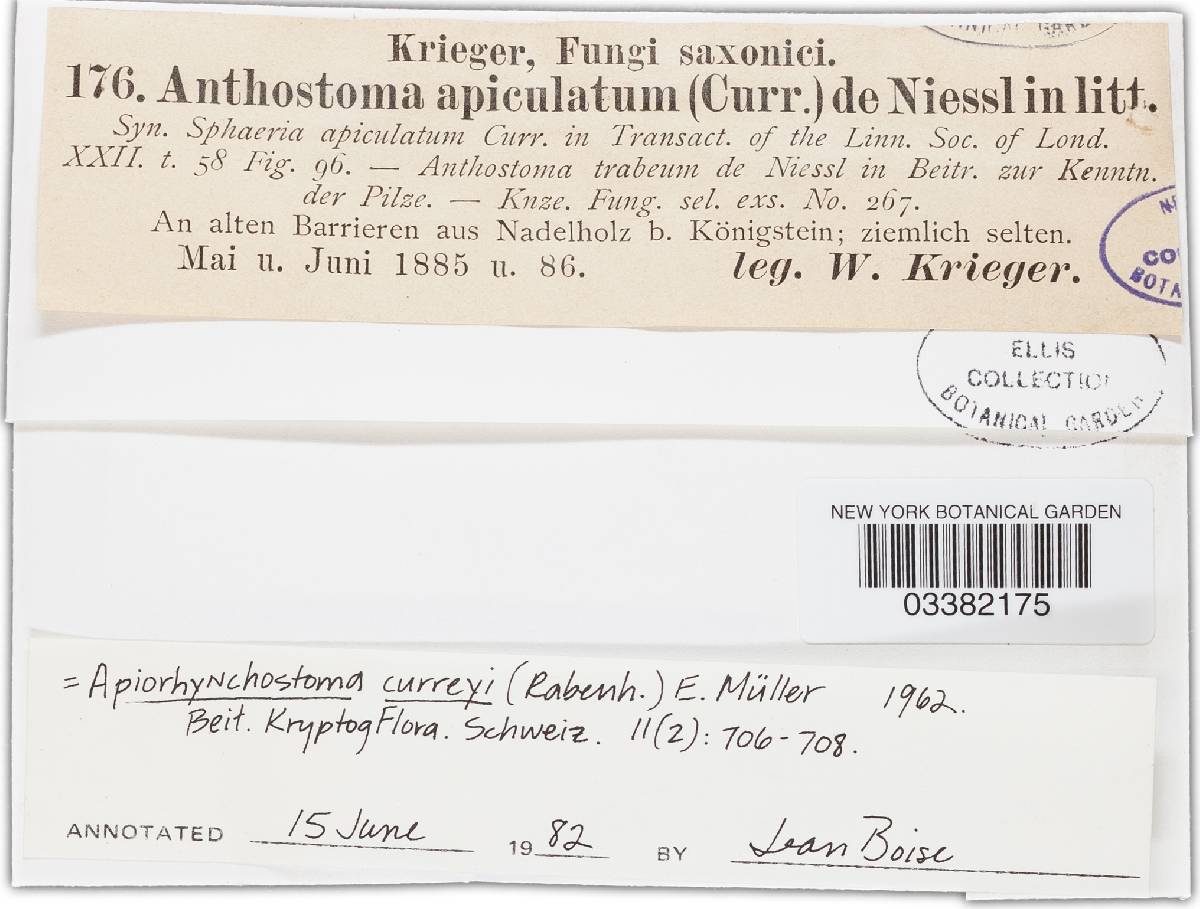 Krieger, Fungi saxonici.
176. Anthostoma apiculatum (Curr.) de Niessl in litt.
Syn. Sphaeria apiculatum Curr. in Transact. of the Linn. Soc. of Lond.
XXII. t. 58 Fig. 96. — Anthostoma trabeum de Niessl in Beitr. zur Kenntn.
der Pilze. — Knze. Fung. sel. exs. No. 267.
An alten Barrieren aus Nadelholz b. Königstein; ziemlich selten.
Mai u. Juni 1885 u. 86. leg. W. Krieger.
ELLIS
COLLECTION
BOTANICAL GARDEN
NEW YORK BOTANICAL GARDEN
03382175
= Apiorhynchostoma curreyi (Rabenh.) E. Müller 1962.
Beit. Kryptog Flora. Schweiz. 11(2): 706-708.
ANNOTATED 15 June 1982 BY Jean Boise